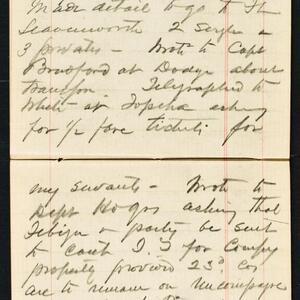 Made detail to go to Ft
Leavenworth 2 Sergts &
3 privates - Wrote to Capt
Bradford at Dodge about
Telegraphed to
White at Topeka asking
for 1/2 fare tickets for
my servants - Wrote to
Dept Hdqrs asking that
& party be sent
to cant I. T for Compy
property provided 23d. Cos
are to remain on Uncompahgre